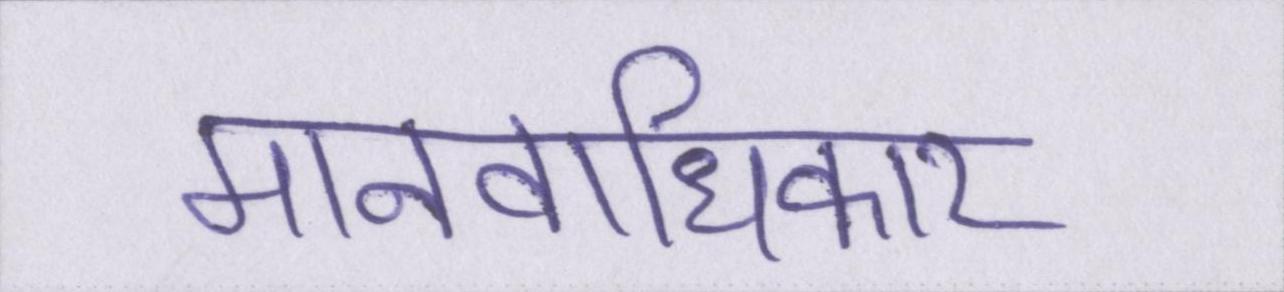 मानवाधिकार